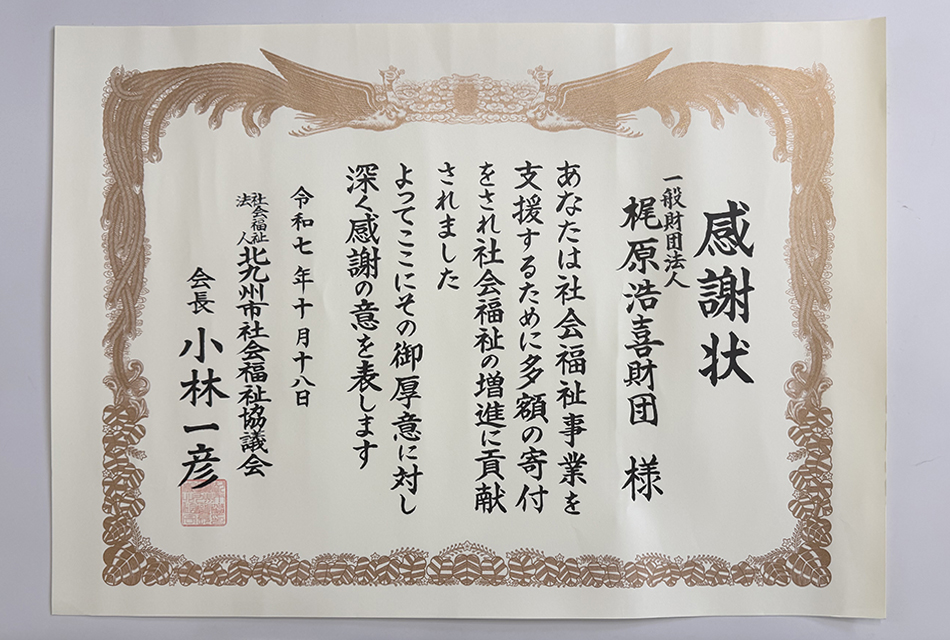 感謝状
一般財団法人
梶原浩喜財団 様
あなたは社会福祉事業を
支援するために多額の寄付
をされ社会福祉の増進に貢献
されました
よってここにその御厚意に対し
深く感謝の意を表します
令和七年十月十八日
社会福祉法人
北九州市社会福祉協議会
会長 小林一彦